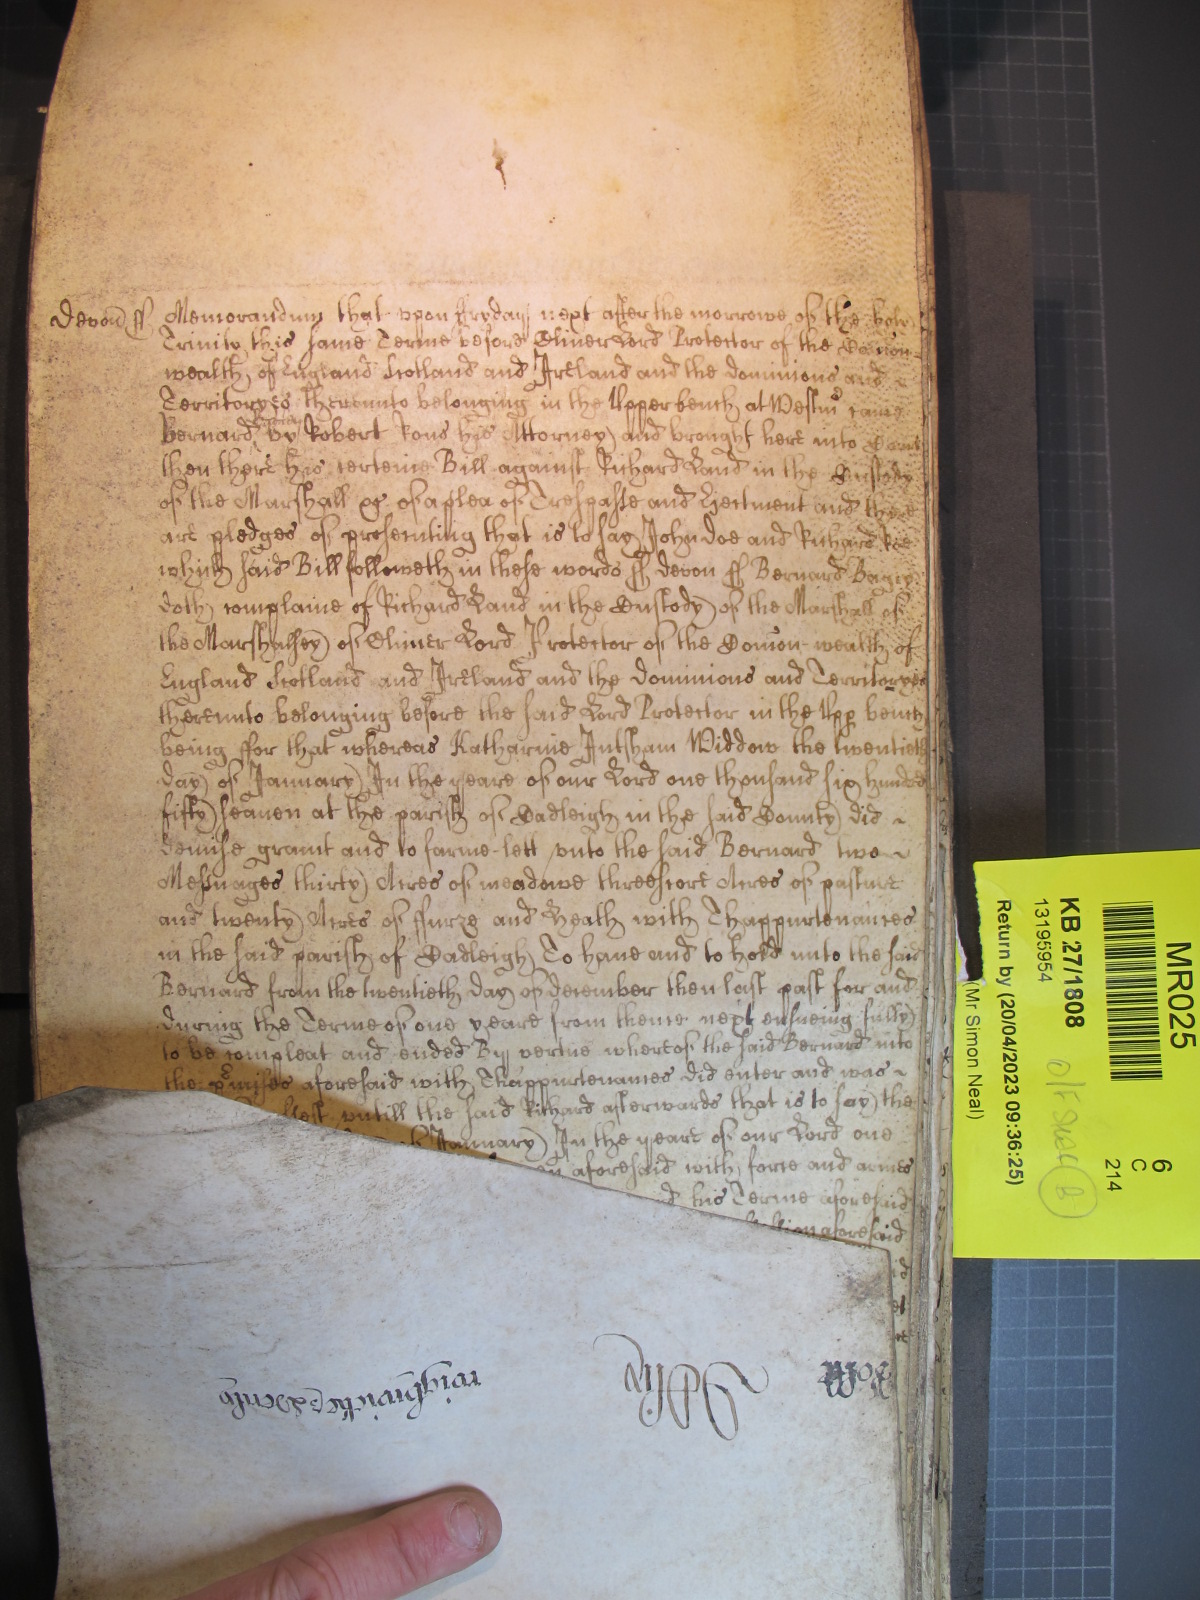 Devon ss Memorandum that upon ffryday next after the morrowe of the holy
Trinity this same Terme before Oliver Lord Protector of the Comon-
wealth of England Scotland and Ireland and the dominions and
Territoryes thereunto belonging in the Upper bench at Westm came
Bernard by Robert Rous his Attorney and brought here into Court
then there his certeine Bill against Richard Land in the Custody
of the Marshall &c of a plea of Trespasse and Eiectment and there
are pledges of prosecuting that is to say John Doe and Richard Roe
which said Bill followeth in these words ss devon ss Bernard
doth complaine of Richard Land in the Custody of the Marshall of
the Marshalsey of Oliver Lord Protector of the Comon-wealth of
England Scotland and Ireland and the dominions and Territoryes
thereunto belonging before the said Lord Protector in the Upp bench
being ffor that whereas Katharine Widdow the twentieth
day of January In the yeare of our Lord one thousand six hundred
fifty seaven at the parish of Cadleigh in the said County did
demise graunt and to farme-lett unto the said Bernard twoe
Messuages thirty Acres of meadowe threescore Acres of pasture
and twenty Acres of ffurze and Heath with Thappurtenances
in the said parish of Cadleigh To have and to hold unto the said
Bernard from the twentieth day of december then last past for and
during the Terme of one yeare from thence next ensueing fully
to be compleat and ended By vertue whereof the said Bernard into
the p'misses aforesaid with Thappurtenances did enter and was
untill the said Richard afterwards that is to say the
January In the yeare of our Lord one
aforesaid with force and armes
his Terme aforesaid
aforesaid
MR025
6
C
214
KB 27/1808
13195954
Return by (20/04/2023 09:36:25)
(Mr Simon Neal)